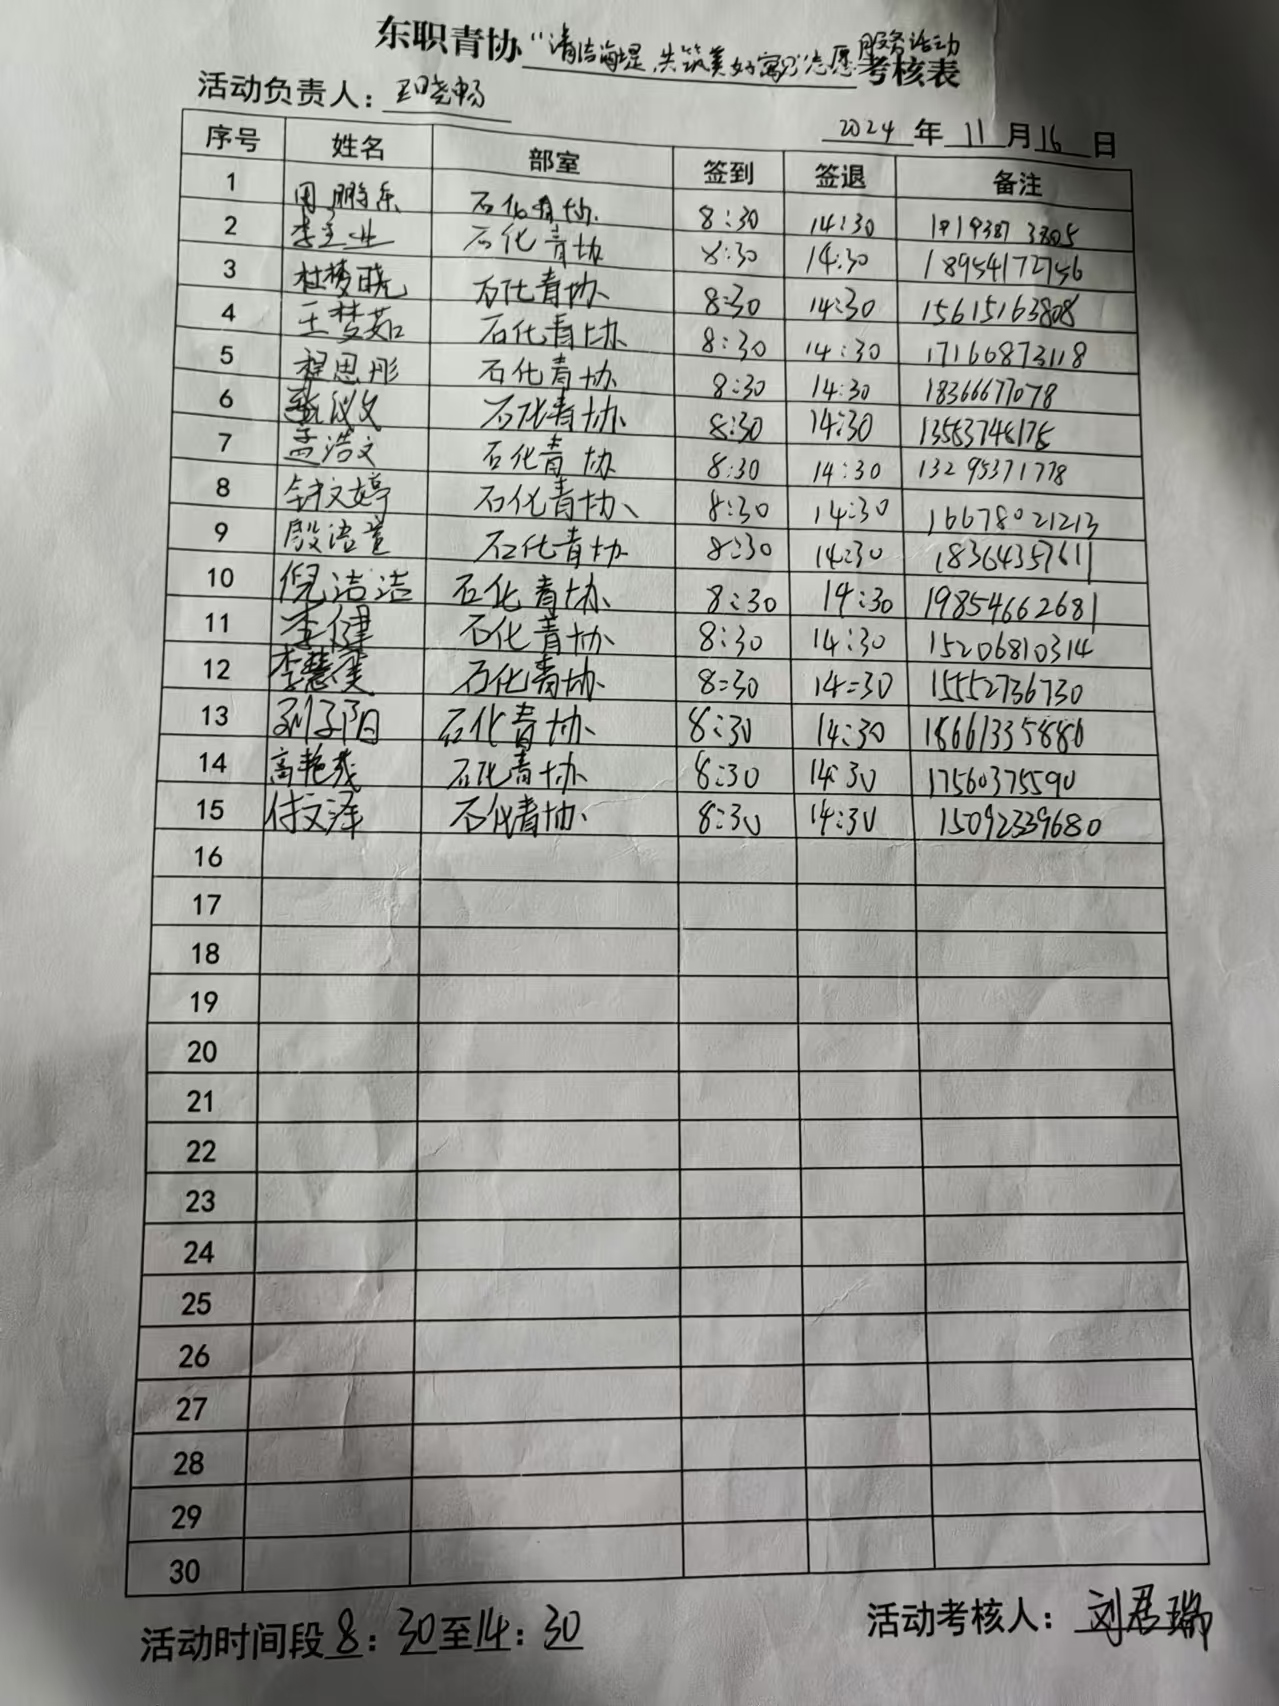 服务活动
东职青协“清洁海堤，共筑美好家园”志愿考核表
活动负责人：王晓畅
2024年11月16日
序号 姓名 部室 签到 签退 备注
1 周鹏乐 石化青协 8:30 14:30
2 石化青协 8:30 14:30 18954172756
3 杜梦晓 石化青协 8:30 14:30 15615163808
4 王梦茹 石化青协 8:30 14:30 17166873118
5 程思彤 石化青协 8:30 14:30 18366677078
6 石化青协 8:30 14:30
7 孟浩文 石化青协 8:30 14:30 13295371778
8 文婷 石化青协 8:30 14:30 16678021213
9 殷浩萱 石化青协 8:30 14:30 18364357611
10 倪洁洁 石化青协 8:30 14:30 19854662681
11 李健 石化青协 8:30 14:30 15206810314
12 李慧 石化青协 8:30 14:30 15552736730
13 孙子阳 石化青协 8:30 14:30 18661335886
14 高艳 石化青协 8:30 14:30 17560375590
15 付文泽 石化青协 8:30 14:30 15092339680
16
17
18
19
20
21
22
23
24
25
26
27
28
29
30
活动时间段8：30至14：30
活动考核人：刘君瑞